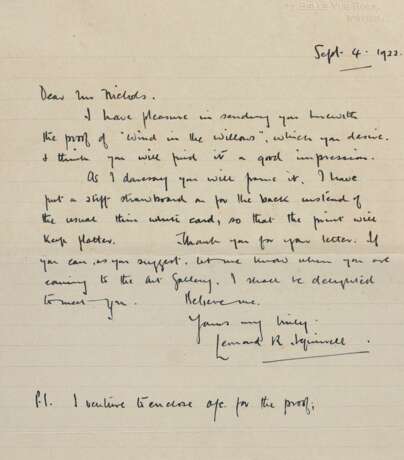 Sept. 4. 1922.
Dear Mrs Nichols.
I have pleasure in sending you herewith
the proof of "Wind in the Willows", which you desire.
I think you will find it a good impression.
As I daresay you will frame it, I have
put a stiff strawboard on for the back instead of
the usual thin white card, so that the print will
keep flatter. Thank you for your letter. If
you can, as you suggest, let me know when you are
coming to the Art Gallery, I shall be delighted
to meet you. Believe me.
Yours very truly.
Leonard R. Squirrell.
P.S. I venture to enclose a/c. for the proof.